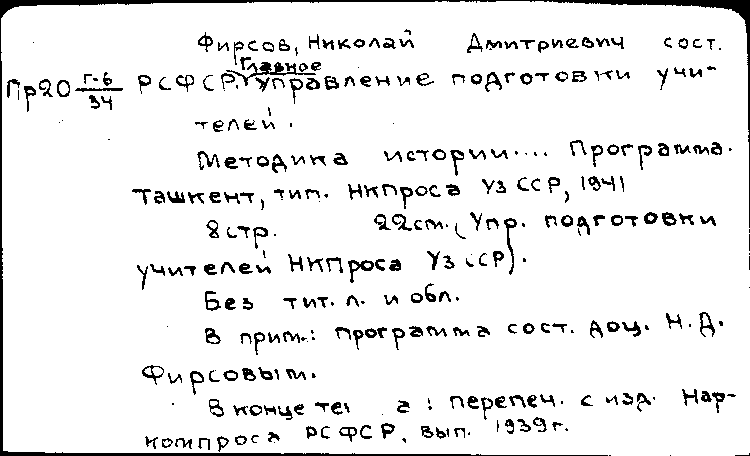 Фирсов, Николай Дмитриевич сост.
Главное
Пр20 Г-6/34 РСФСР. Управление подготовки учи-
телей.
Методика истории.... Программа.
Ташкент, тип. НКПроса УзССР, 1941
8стр. 22см. (Упр. подготовки
учителей НКПроса УзССР).
Без тит. л. и обл.
В прим.: программа сост. доц. Н.Д.
Фирсовым.
В конце : перепеч. с изд. Нар-
компроса РСФСР, вып. 1939г.